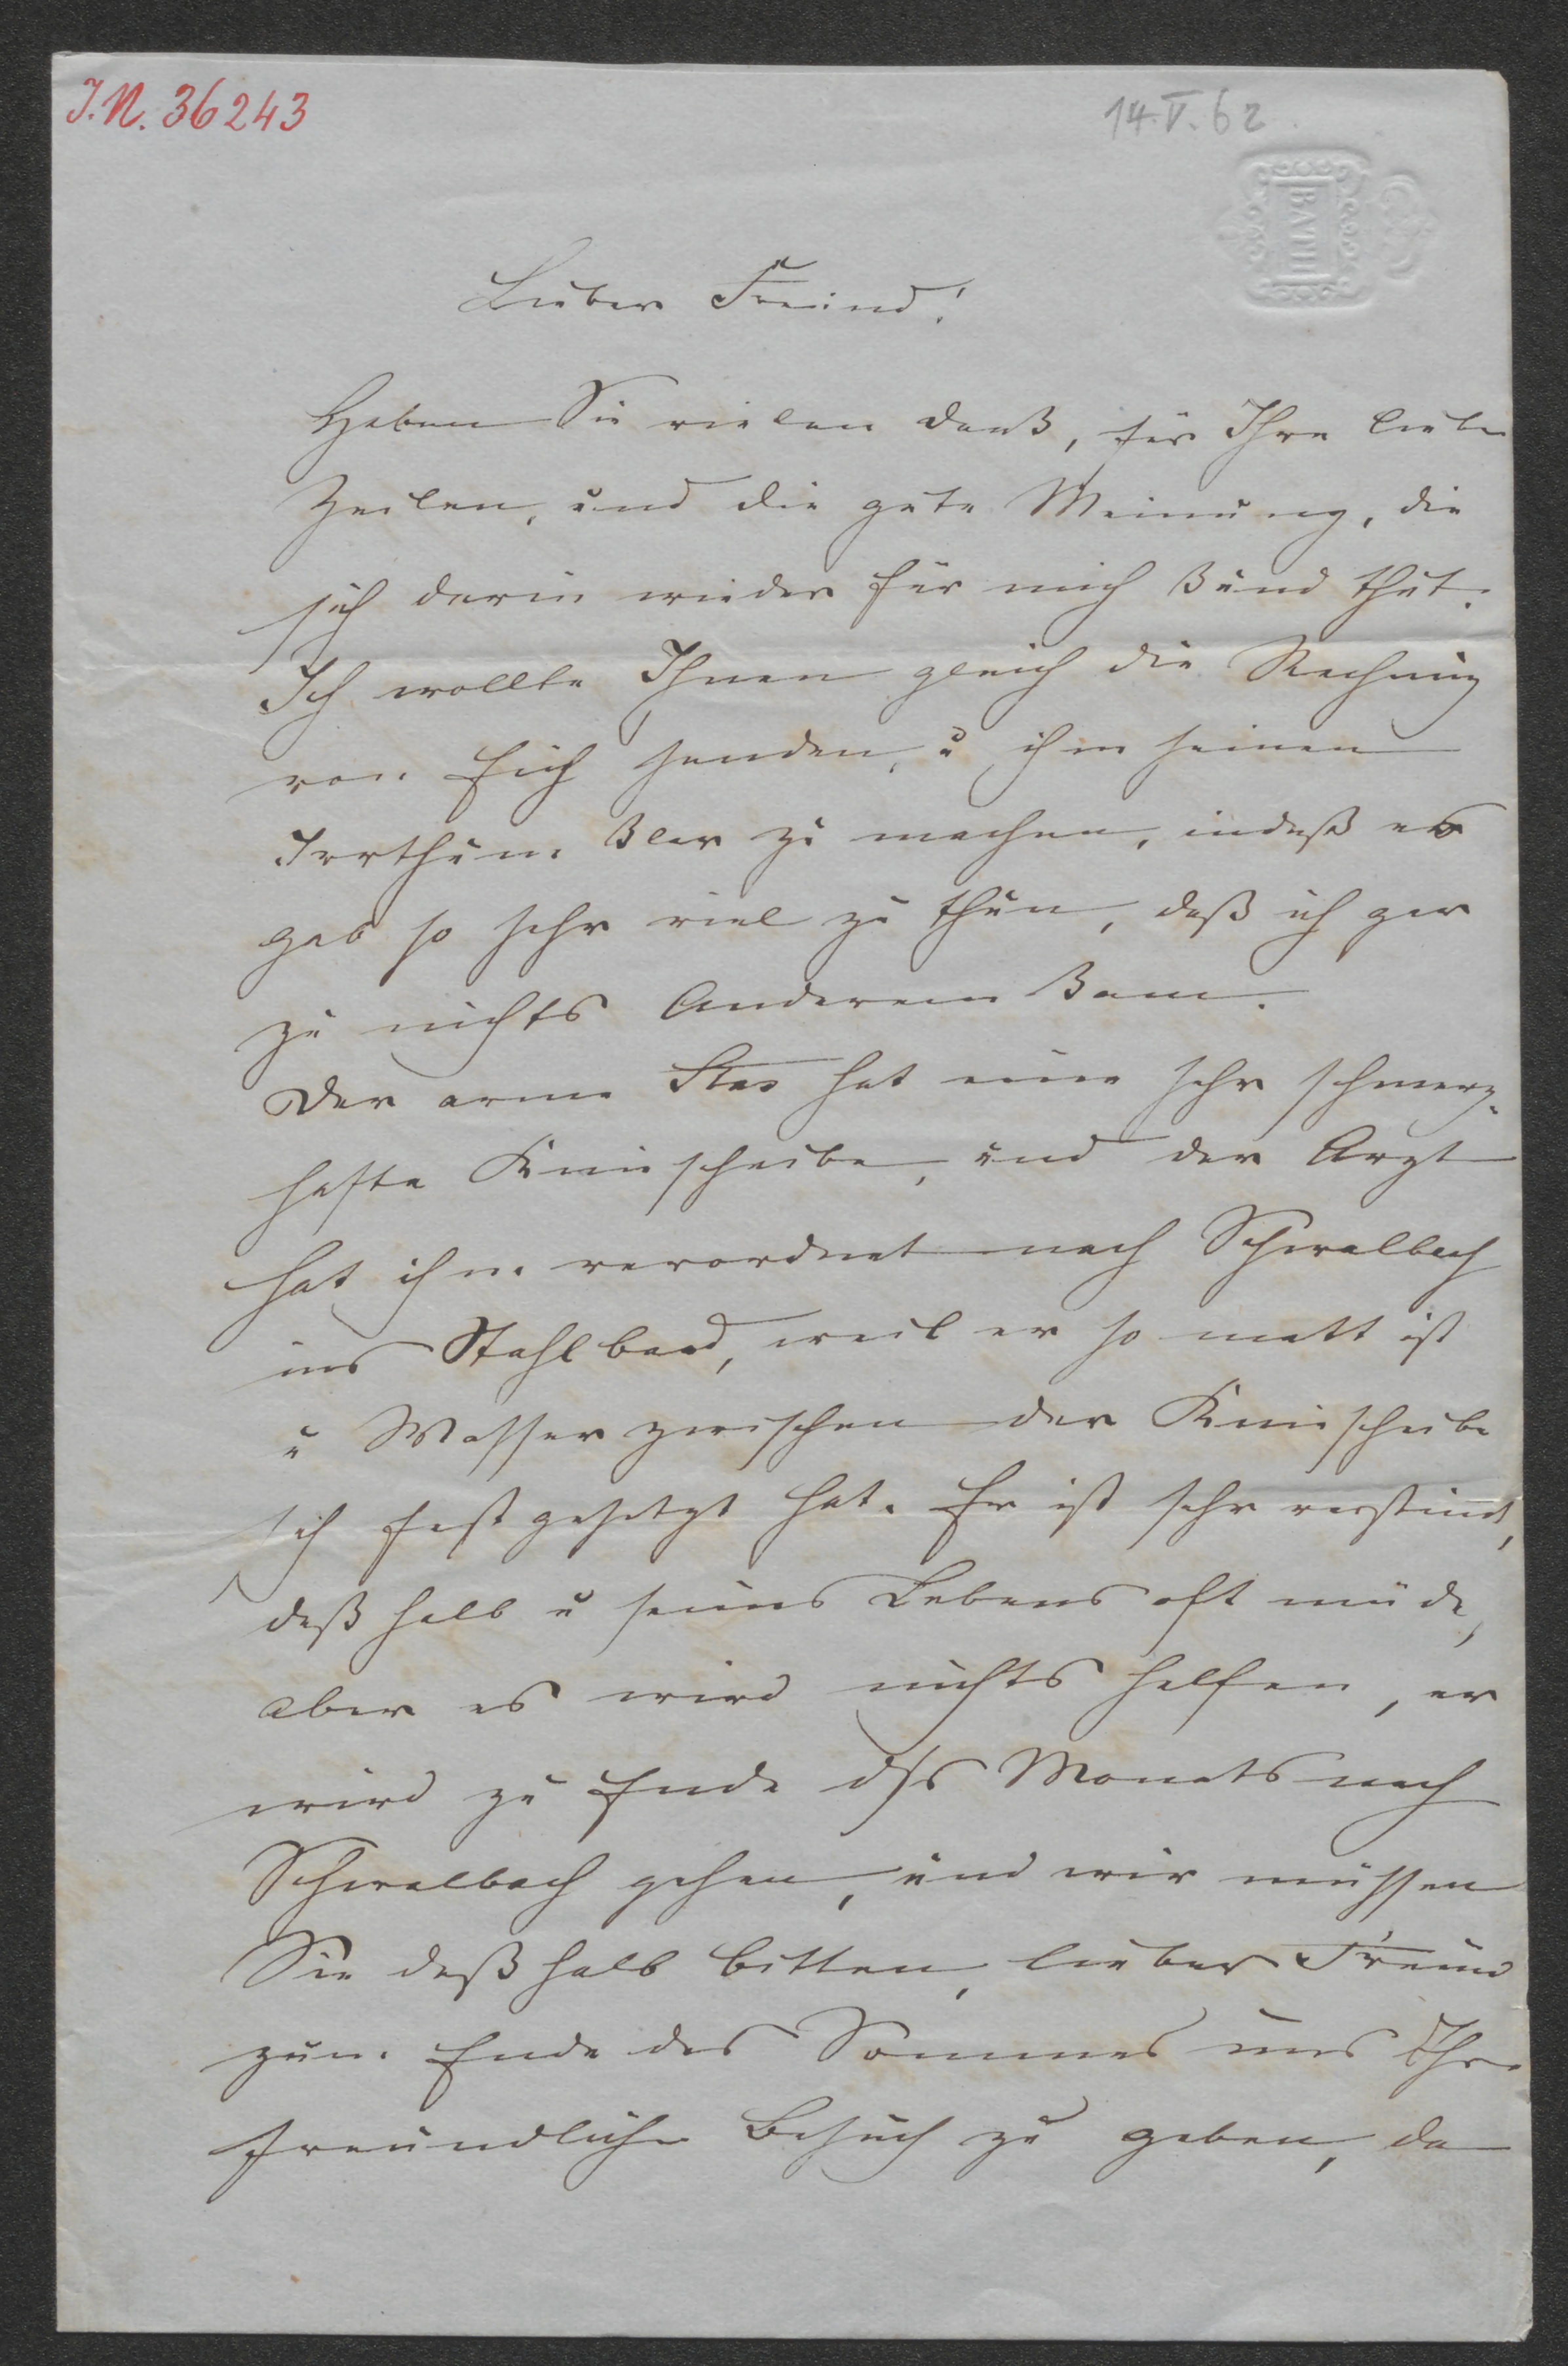 I.N. 36243
14.V.62
BATH
Lieber Freund!
Haben Sie vielen Dank, für Ihre lieben
Zeilen, und die gute Meinung, die
sich darin wieder für mich kund thut.
Ich wollte Ihnen gleich die Rechnung
von senden, u ihm seinen
Irrthum klar zu machen, indeß es
gab so sehr viel zu thun, daß ich gar
zu nichts Anderem kam.
Der arme hat eine sehr schmerz-
hafte Kniescheibe, und der Arzt
hat ihm verordnet nach Schwalbach
ins Stahlbad, weil er so matt ist
u Wasser zwischen der Kniescheibe
sich festgesetzt hat. Er ist sehr verstimt,
deßhalb u seines Lebens oft müde,
aber es wird nichts helfen, er
wird zu Ende dss Monats nach
Schwalbach gehen, und wir müssen
Sie deßhalb bitten, lieber Freund
zum Ende des Sommers uns Ihre
freundliche Besuch zu geben, da